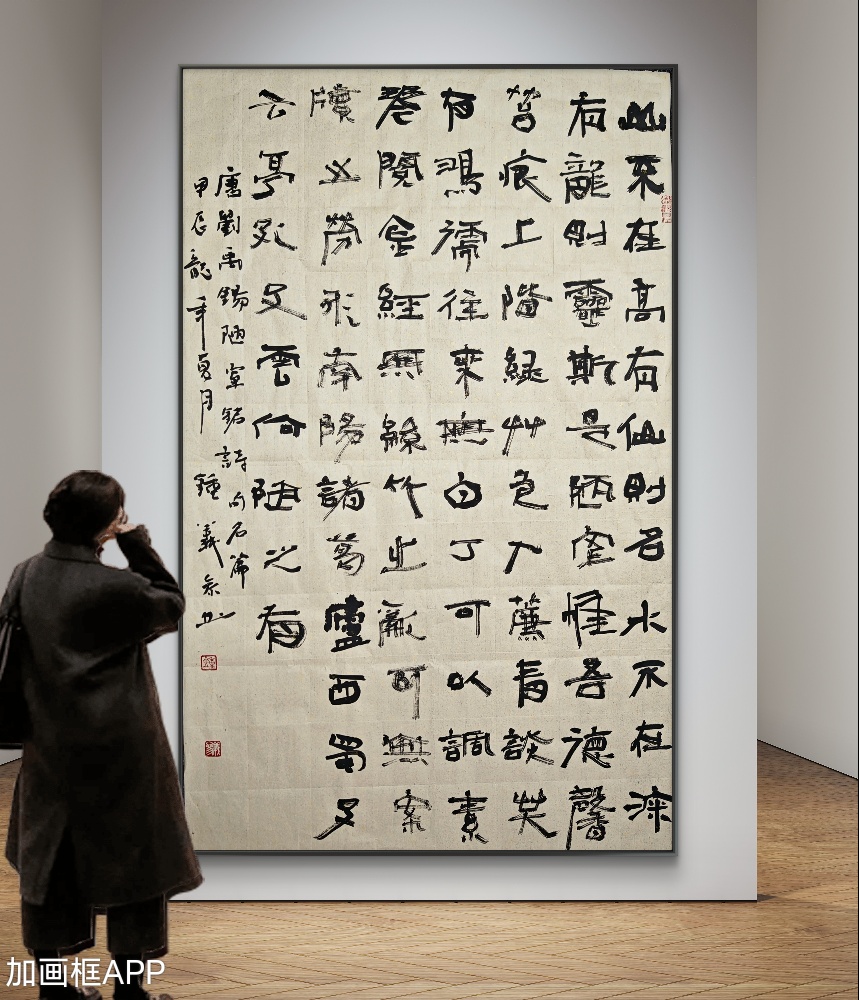 山不在高有仙則名水不在深
有龍則靈斯是陋室惟吾德馨
苔痕上階緑艸色入簾青談笑
有鴻儒往來無白丁可以調素
琴閱金經無絲竹之亂耳無案
牘之勞形南陽諸葛廬西蜀子
云亭孔子雲何陋之有
唐劉禹錫陋室銘詩句名篇
甲辰龍年夏月 鍾義
加画框APP